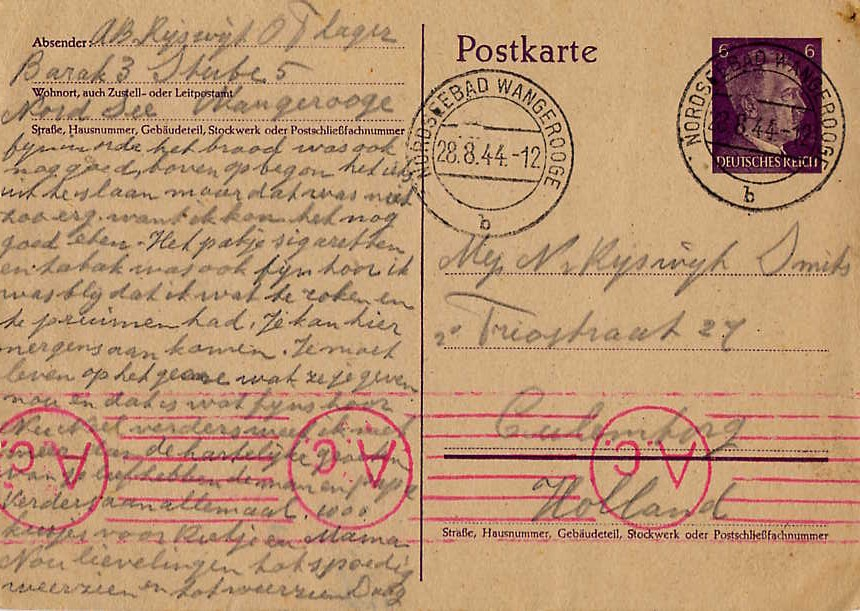 Absender: AB Rijswijk OT lager
Barak 3 Stube 5
Wohnort, auch Zustell- oder Leitpostamt
Nord See Wangerooge
Straße, Hausnummer, Gebäudeteil, Stockwerk oder Postschließfachnummer
het brood was ook
nog goed, bovenop begon het
uit te slaan maar dat was niet
zoo erg want ik kon het nog
goed eten. Het pakje sigaretten
en tabak was ook fijn hoor ik
was blij dat ik wat te roken en
te pruimen had. Je kan hier
nergens aan komen. Je moet
leven op het geene wat ze je geven
nou en dat is wat fijns hoor
Nu ik verders niet
meer de hartelijke groeten
van je liefhebbende man en papa
Verders aan allemaal. 1000
kusjes voor en Mama
Nou lievelingen tot spoedig
weerzien en tot weerzien Dag
Postkarte
NORDSEEBAD WANGEROOGE
28.8.44.-12
b
6 6
DEUTSCHES REICH
NORDSEEBAD WANGEROOGE
28.8.44.-12
b
Mej N v Rijswijk Smits
2e Triostraat 27
Culemborg
Holland
Straße, Hausnummer, Gebäudeteil, Stockwerk oder Postschließfachnummer
A.C.
A.C.
A.C.